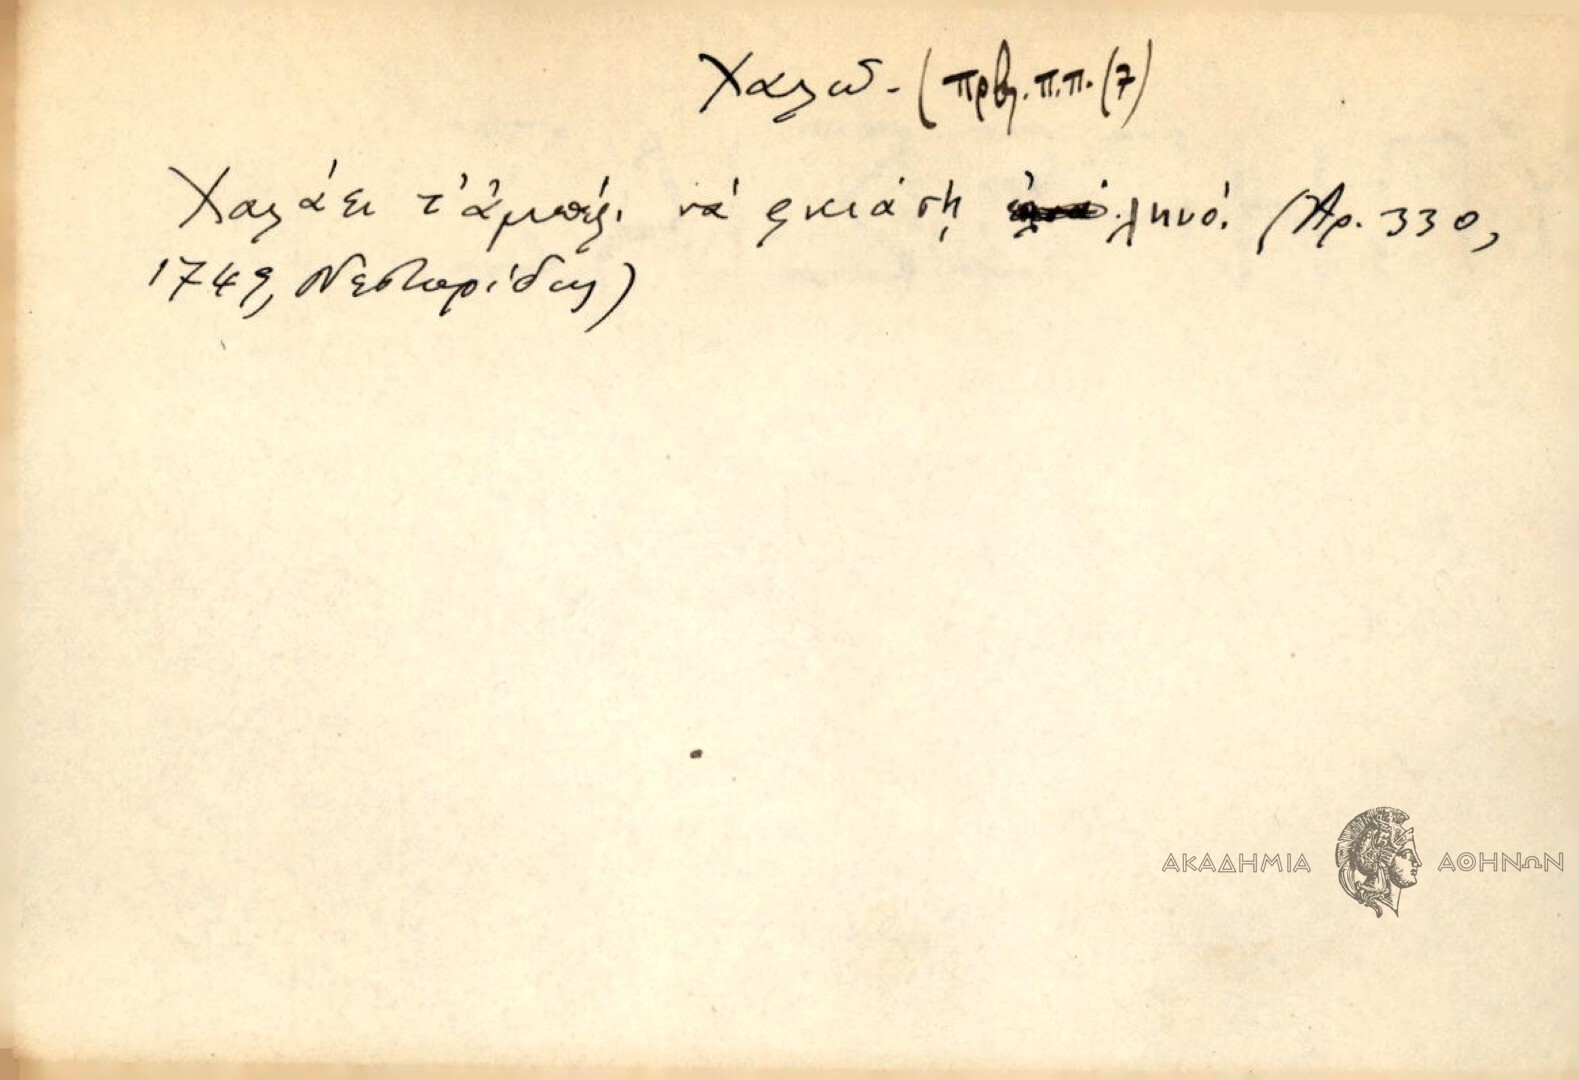 Χαλῶ - (πρβλ. π.π. (7)
Χαλάει τ' ἀμπέλι νά φκιάσῃ ληνό. (Ἀρ. 330,
1749, Νεστορίδης)
ΑΚΑΔΗΜΙΑ ΑΘΗΝΩΝ